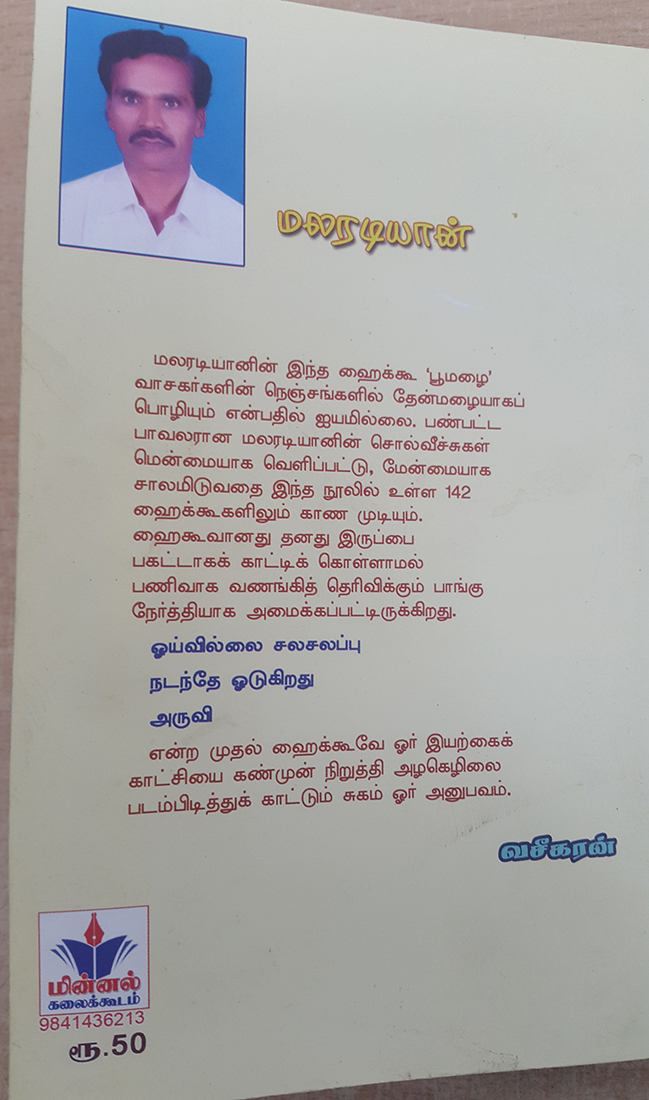 மலரடியான்
மலரடியானின் இந்த ஹைக்கூ 'பூமழை'
வாசகர்களின் நெஞ்சங்களில் தேன்மழையாகப்
பொழியும் என்பதில் ஐயமில்லை. பண்பட்ட
பாவலரான மலரடியானின் சொல்வீச்சுகள்
மென்மையாக வெளிப்பட்டு, மேன்மையாக
சாலமிடுவதை இந்த நூலில் உள்ள 142
ஹைக்கூகளிலும் காண முடியும்.
ஹைகூவானது தனது இருப்பை
பகட்டாகக் காட்டிக் கொள்ளாமல்
பணிவாக வணங்கித் தெரிவிக்கும் பாங்கு
நேர்த்தியாக அமைக்கப்பட்டிருக்கிறது.
ஓய்வில்லை சலசலப்பு
நடந்தே ஓடுகிறது
அருவி
என்ற முதல் ஹைக்கூவே ஓர் இயற்கைக்
காட்சியை கண்முன் நிறுத்தி அழகெழிலை
படம்பிடித்துக் காட்டும் சுகம் ஓர் அனுபவம்.
வசீகரன்
மின்னல்
கலைக்கூடம்
9841436213
ரூ.50